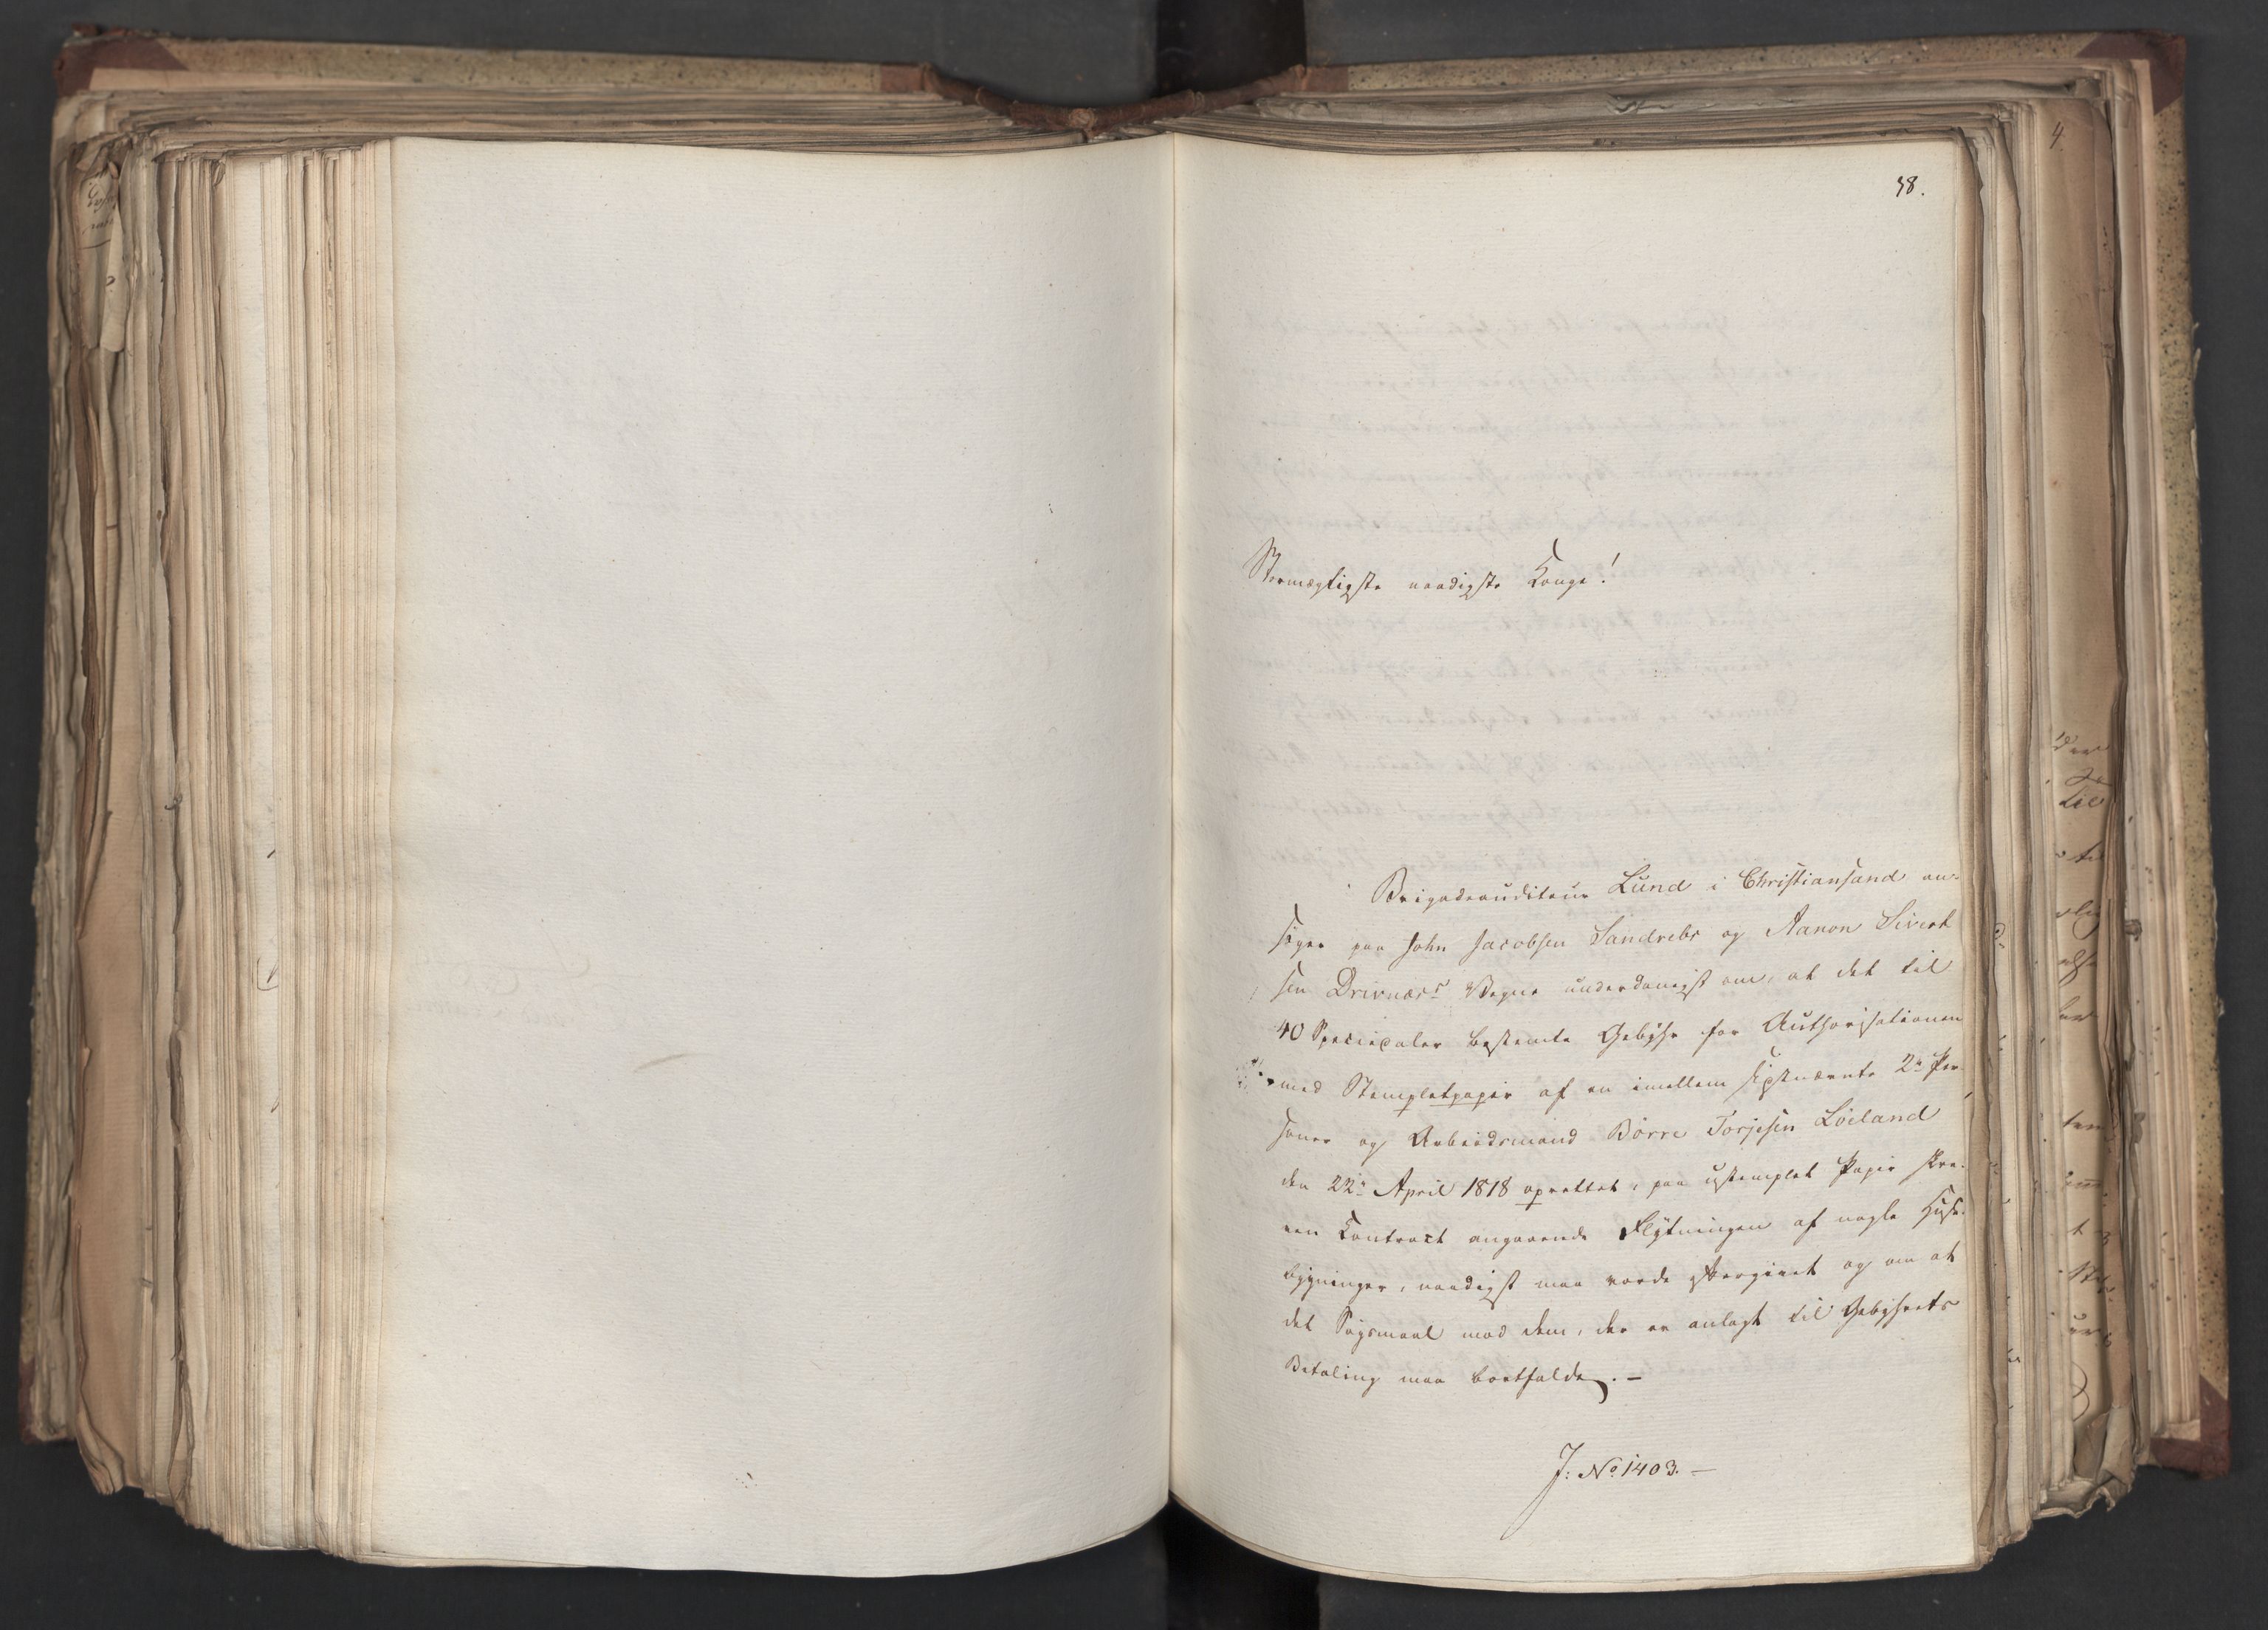 38.
Stormægtigste naadigste Konge!
Brigadeauditeur Lund i Christiansand an-
søger paa John Jacobsen Sandrebs og Aanon Sivert
sen Drivnæss Vegne underdanigst om, at det til
40 Speciedaler bestemte Gebyhr for Authorisationen
med Stempletpapir af en imellem sidstnævnte 2de Per
soner og Arbeidsmand Börre Torjesen Löeland
den 22de April 1818 oprettet, paa ustemplet Papir skre-
ven Contract angaaende Flytningen af nogle Huus-
bygninger, naadigst maa vorde eftergivet og om at
det Søgsmaal mod dem, der er anlagt til Gebyhrets
Betaling maa bortfalde. –
J: No 1403. –
4.